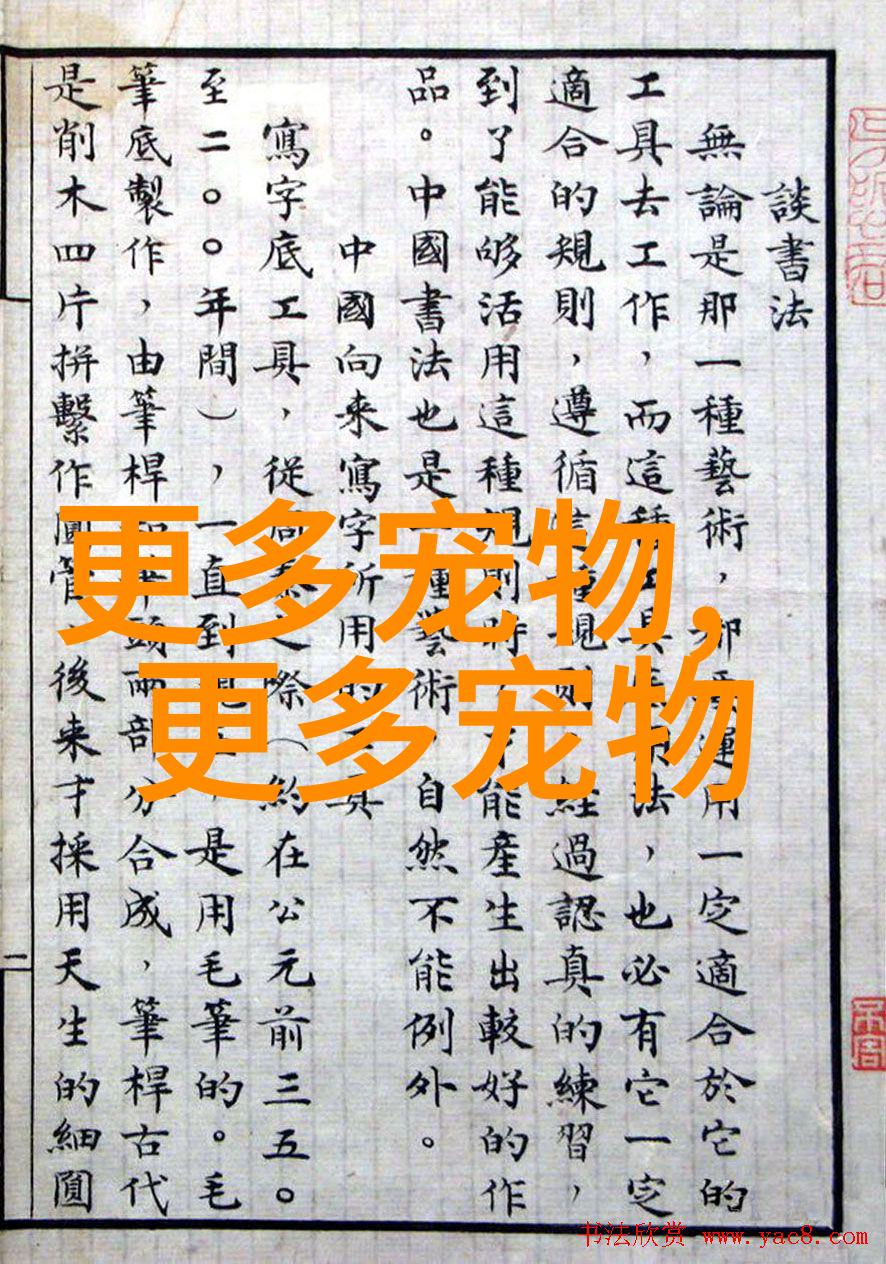 談書法
無論是那一種藝術，運用一定適合於它的
工具去工作，而這種工具用法，也必有它一定
適合的規則，遵循這種規則，經過認真的練習，
到了能够活用這種規則時，才能產生出較好的作
品。中國書法也是一種藝術，自然不能例外。
中國向来寫字所用的工具
寫字底工具，從周秦之際（約在公元前三五。
至二。。年間），一直到現，是用毛筆的。毛
筆底製作，由筆桿和筆頭兩部分合成，筆桿古代
是削木四片拼繫作圓管，後来才採用天生的細圓
二
更多宠物,
更多宠物
书法欣赏 www.yac8.com